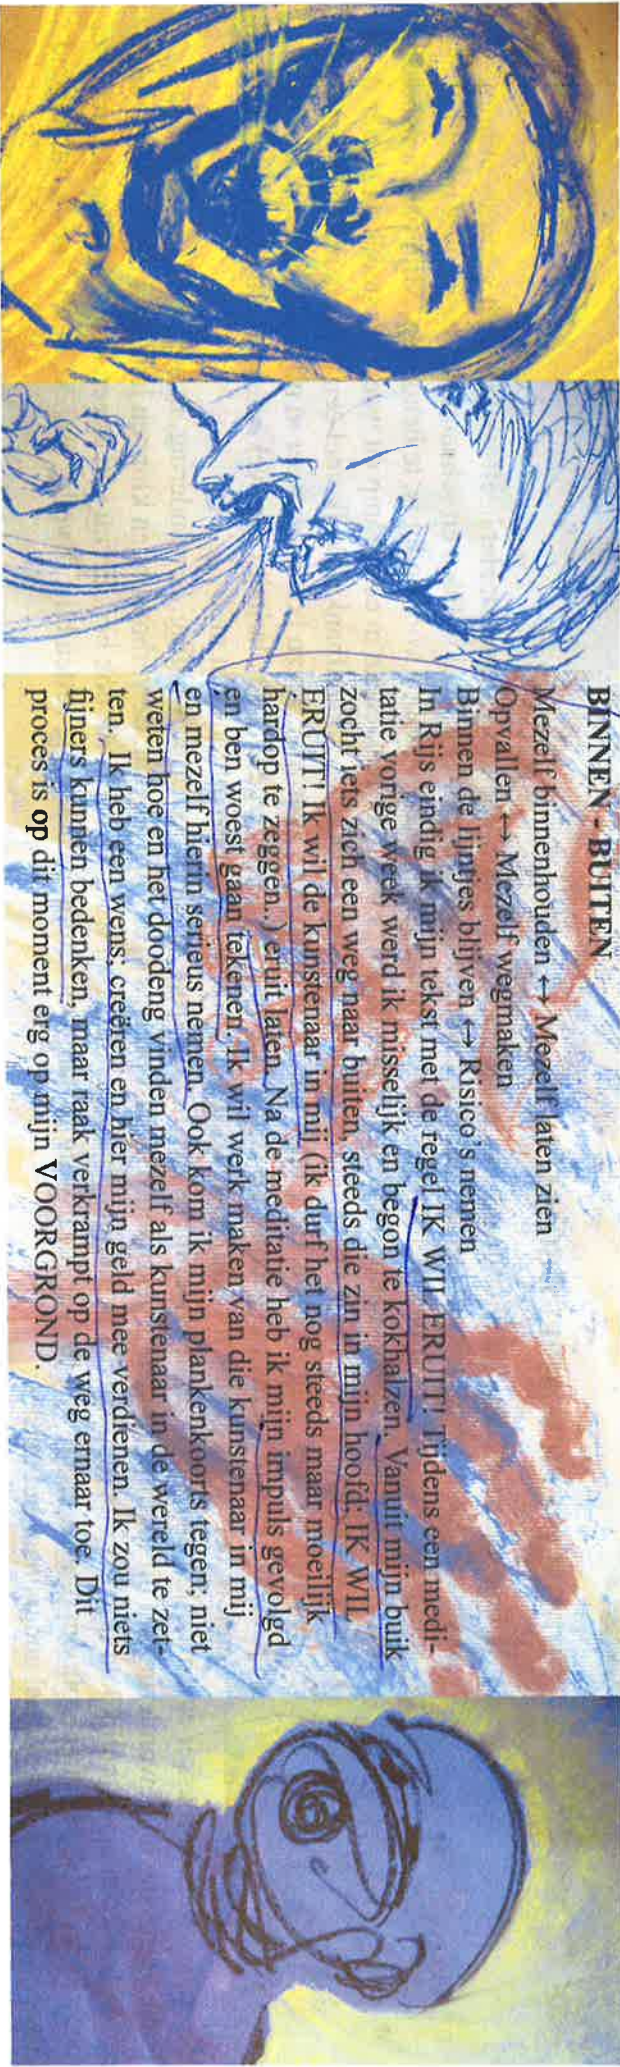 BINNEN - BUITEN
Mezelf binnenhouden ↔ Mezelf laten zien
Opvallen ↔ Mezelf wegmaken
Binnen de lijntjes blijven ↔ Risico's nemen
In Rijs eindig ik mijn tekst met de regel IK WIL ERUIT! Tijdens een medi-
tatie vorige week werd ik misselijk en begon te kokhalzen. Vanuit mijn buik
zocht iets zich een weg naar buiten, steeds die zin in mijn hoofd: IK WIL
ERUIT! Ik wil de kunstenaar in mij (ik durf het nog steeds maar moeilijk
hardop te zeggen..) eruit laten. Na de meditatie heb ik mijn impuls gevolgd
en ben woest gaan tekenen. Ik wil werk maken van die kunstenaar in mij
en mezelf hierin serieus nemen. Ook kom ik mijn plankenkoorts tegen; niet
weten hoe en het doodeng vinden mezelf als kunstenaar in de wereld te zet-
ten. Ik heb een wens, creëren en hier mijn geld mee verdienen. Ik zou niets
fijners kunnen bedenken, maar raak verkrampt op de weg ernaar toe. Dit
proces is op dit moment erg op mijn VOORGROND.